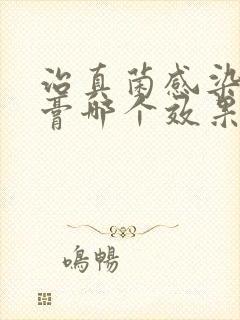 治真菌感染
膏哪个效果
鳴暢